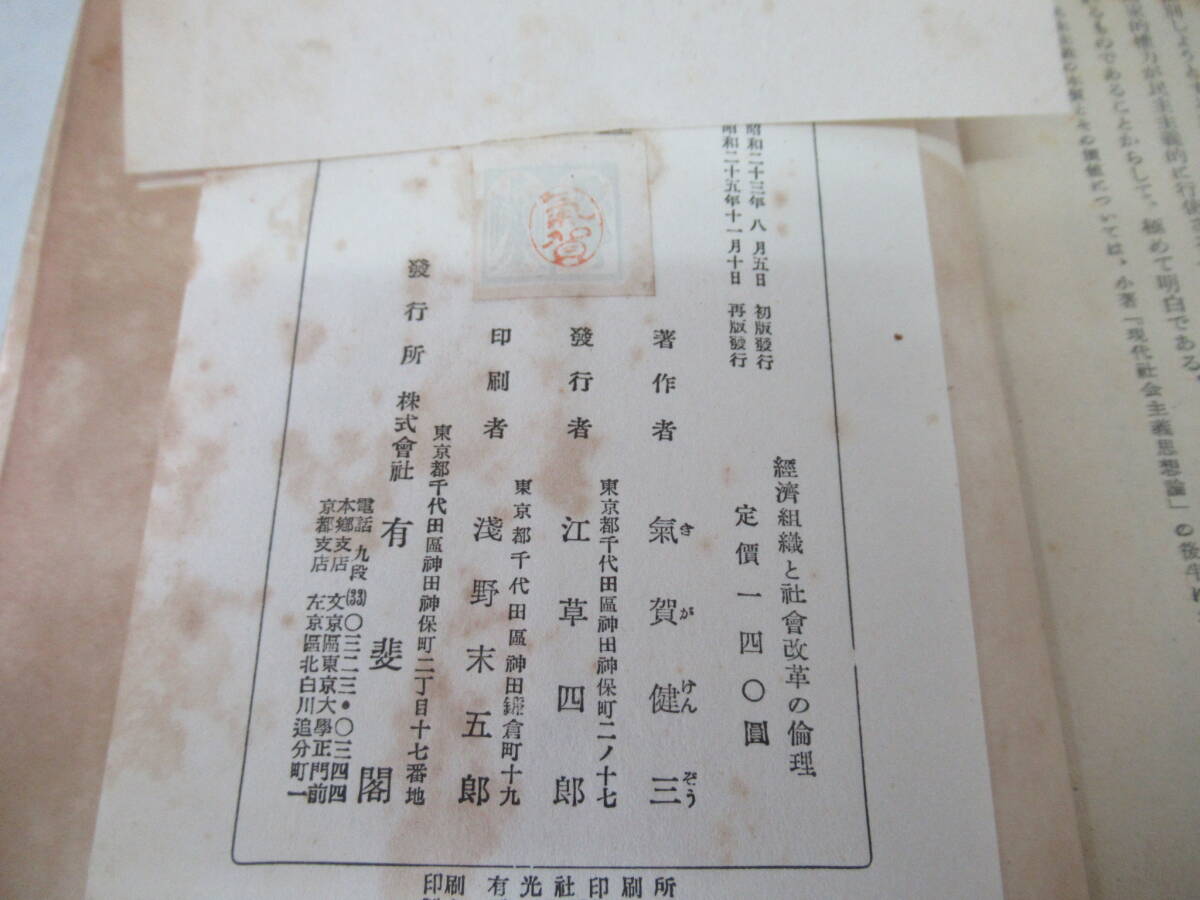 昭和二十三年八月五日 初版發行
昭和二十五年十一月十日 再版發行
氣賀
經濟組織と社會改革の倫理
定價一四〇圓
著作者 氣賀健三
き が けん ぞう
東京都千代田區神田神保町二ノ十七
發行者 江草四郎
東京都千代田區神田鎌倉町十九
印刷者 淺野末五郎
東京都千代田區神田神保町二丁目十七番地
發行所 株式會社 有斐閣
電話 九段(33)〇三二三・〇三四四
本鄉支店 文京區東京大學正門前
京都支店 左京區北白川追分町一
印刷 有光社印刷所
民主主義的に行
ものであることからして、極めて明白である。
については、小著『現代社會主義思想論』の後半